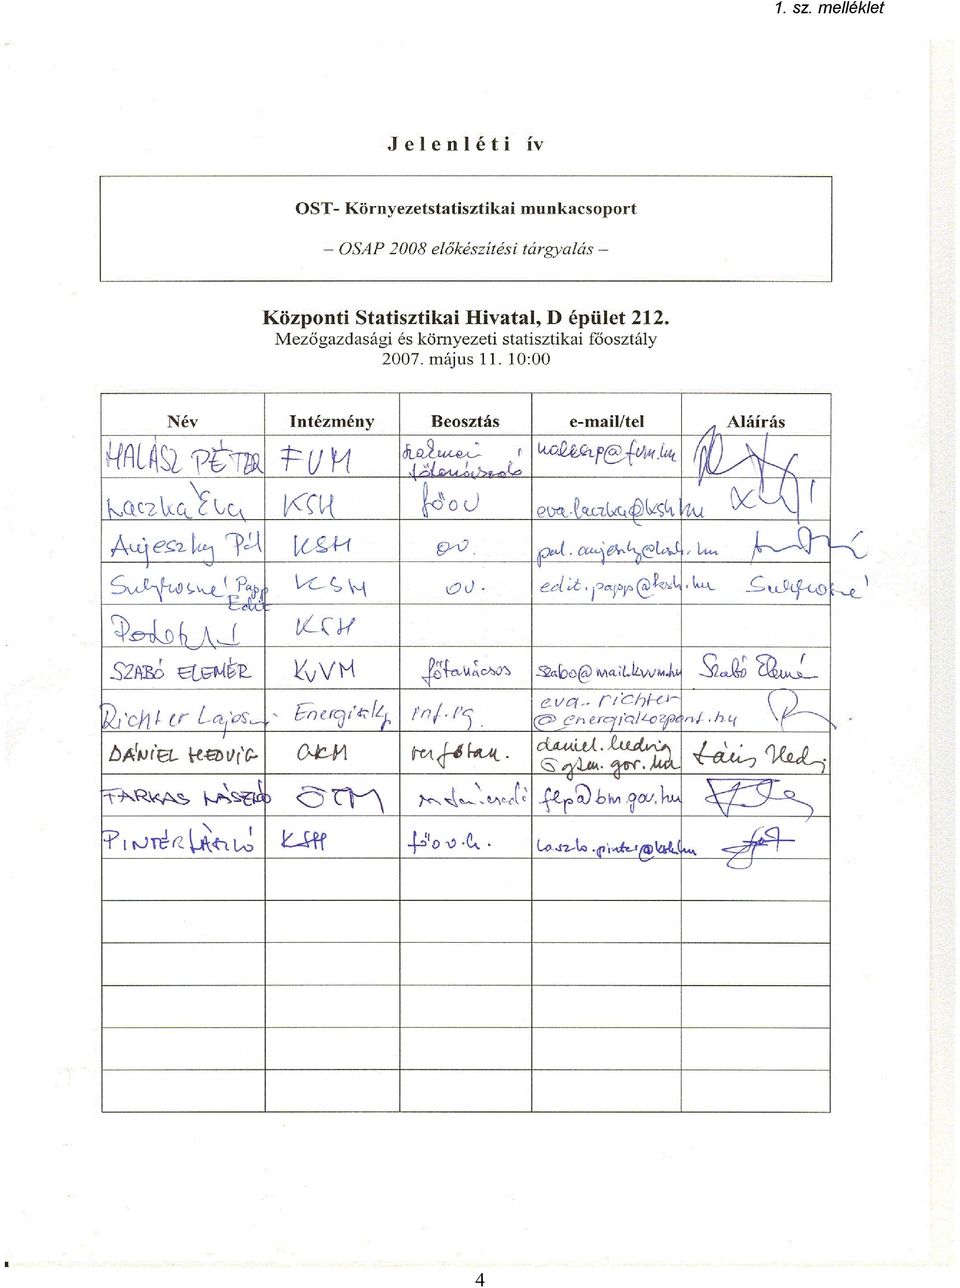 1. sz. melléklet
Jelenléti ív
OST- Környezetstatisztikai munkacsoport
– OSAP 2008 előkészítési tárgyalás –
Központi Statisztikai Hivatal, D épület 212.
Mezőgazdasági és környezeti statisztikai főosztály
2007. május 11. 10:00
Név Intézmény Beosztás e-mail/tel Aláírás
HALÁSZ PÉTER FVM szakmai főtanácsadó halaszp@fvm.hu
Laczka Éva KSH főov eva.laczka@ksh.hu
Aujeszky Pál KSH ov. pal.aujeszky@ksh.hu
Papp Edit KSH ov. edit.papp@ksh.hu
KSH
SZABÓ ELEMÉR KvVM főtanácsos szabo@mail.kvvm.hu Szabó Elemér
Richter Lajos Energiakp. inf.ig. eva.richter
@energiakozpont.hu
DÁNIEL HEDVIG GKM daniel.hedvig
@gkm.gov.hu
FARKAS LÁSZLÓ ÖTM flp@bm.gov.hu
PINTÉR LÁSZLÓ KSH főov.h. laszlo.pinter@ksh.hu
4